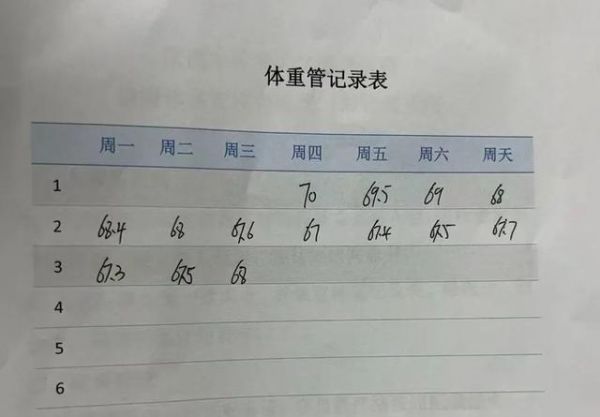 体重管记录表
周一 周二 周三 周四 周五 周六 周天
1 70 69.5 69 68
2 68.4 68 67.6 67 67.4 67.5 67.7
3 67.3 67.5 68
4
5
6